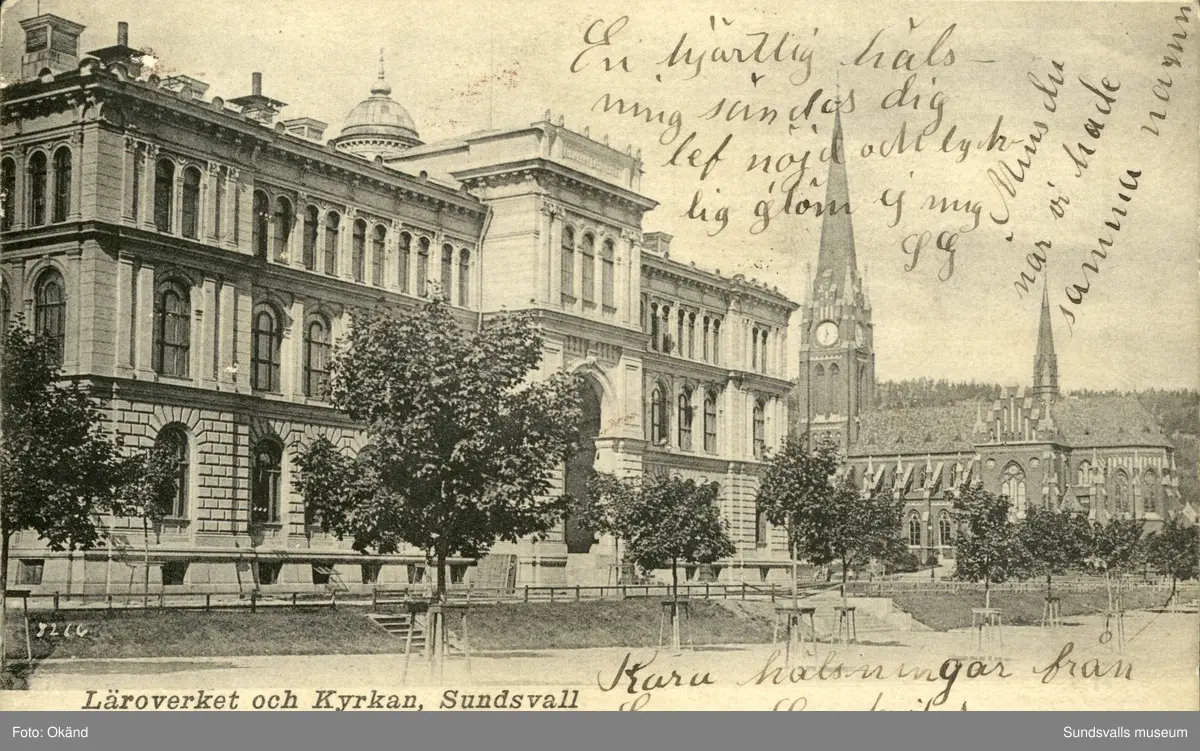 En hjärtlig häls-
ning sändes dig
lef nöjd och lyck-
lig glöm ej mig
SG
Minns du
när vi hade
samma namn
5266
Kära hälsningar från
Läroverket och Kyrkan, Sundsvall
Foto: Okänd
Sundsvalls museum